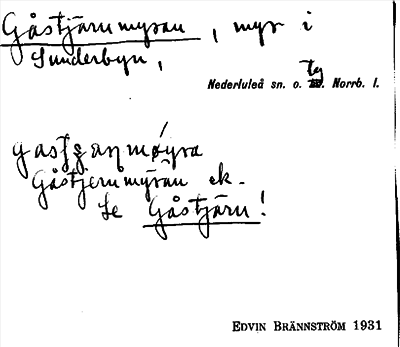 Gåstjärnmyran, myr i
Sunderbyn,
Nederluleå sn. o. tg. Norrb. l.
Gåstjernmyran ek.
Se Gåstjärn!
EDVIN BRÄNNSTRÖM 1931